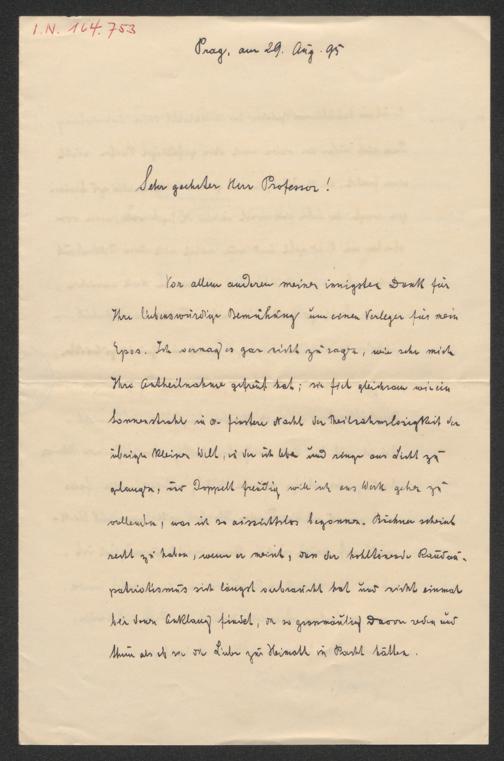 I.N. 164.753
Prag, am 29. Aug. 95
Sehr geehrter Herr Professor!
Vor allem anderen meinen innigsten Dank für
Ihre liebenswürdige Bemühung um einen Verleger für mein
Epos. Ich vermag es gar nicht zu sagen, wie sehr mich
Ihre Antheilnahme gefreut hat; sie fiel gleichsam wie ein
Sonnenstrahl in die finstere Nacht der Theilnahmslosigkeit der
übrigen kleinen Welt, in der ich lebe und ringe ans Licht zu
gelangen, und doppelt freudig will ich ans Werk gehen zu
vollenden, was ich so aussichtslos begonnen. Büchner scheint
recht zu haben, wenn er meint, dass der hohltönende Radau-
patriotismus sich längst verbraucht hat und nicht einmal
bei denen Anklang findet, die so grossmäulig davon reden und
thun als ob sie die Liebe zur Heimath in Pacht hätten.